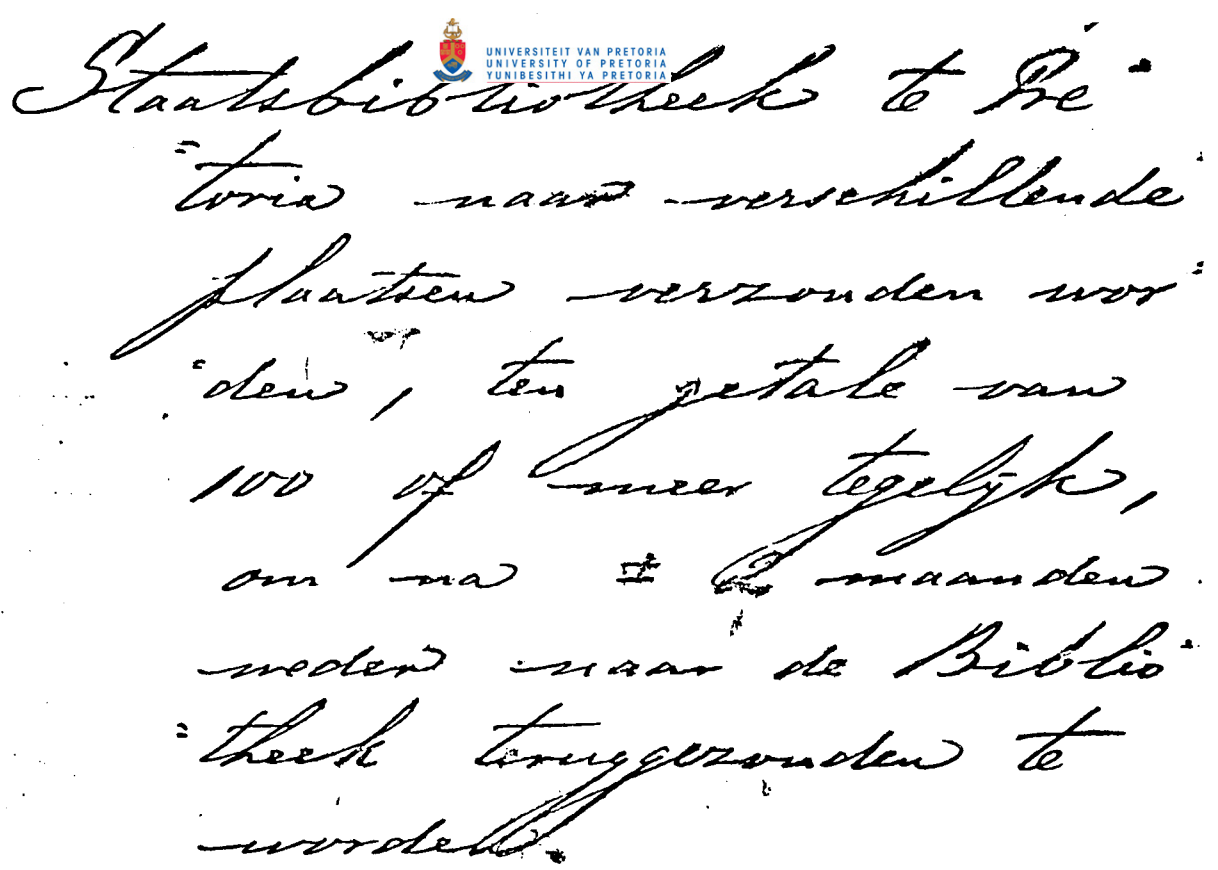 UNIVERSITEIT VAN PRETORIA
UNIVERSITY OF PRETORIA
YUNIBESITHI YA PRETORIA
Staatsbibliotheek te Pre=
=toria naar verschillende
plaatsen verzonden wor=
=den, ten getale van
100 of meer tegelijk,
om na ± maanden
weder naar de Biblio=
=theek teruggezonden te
worden.